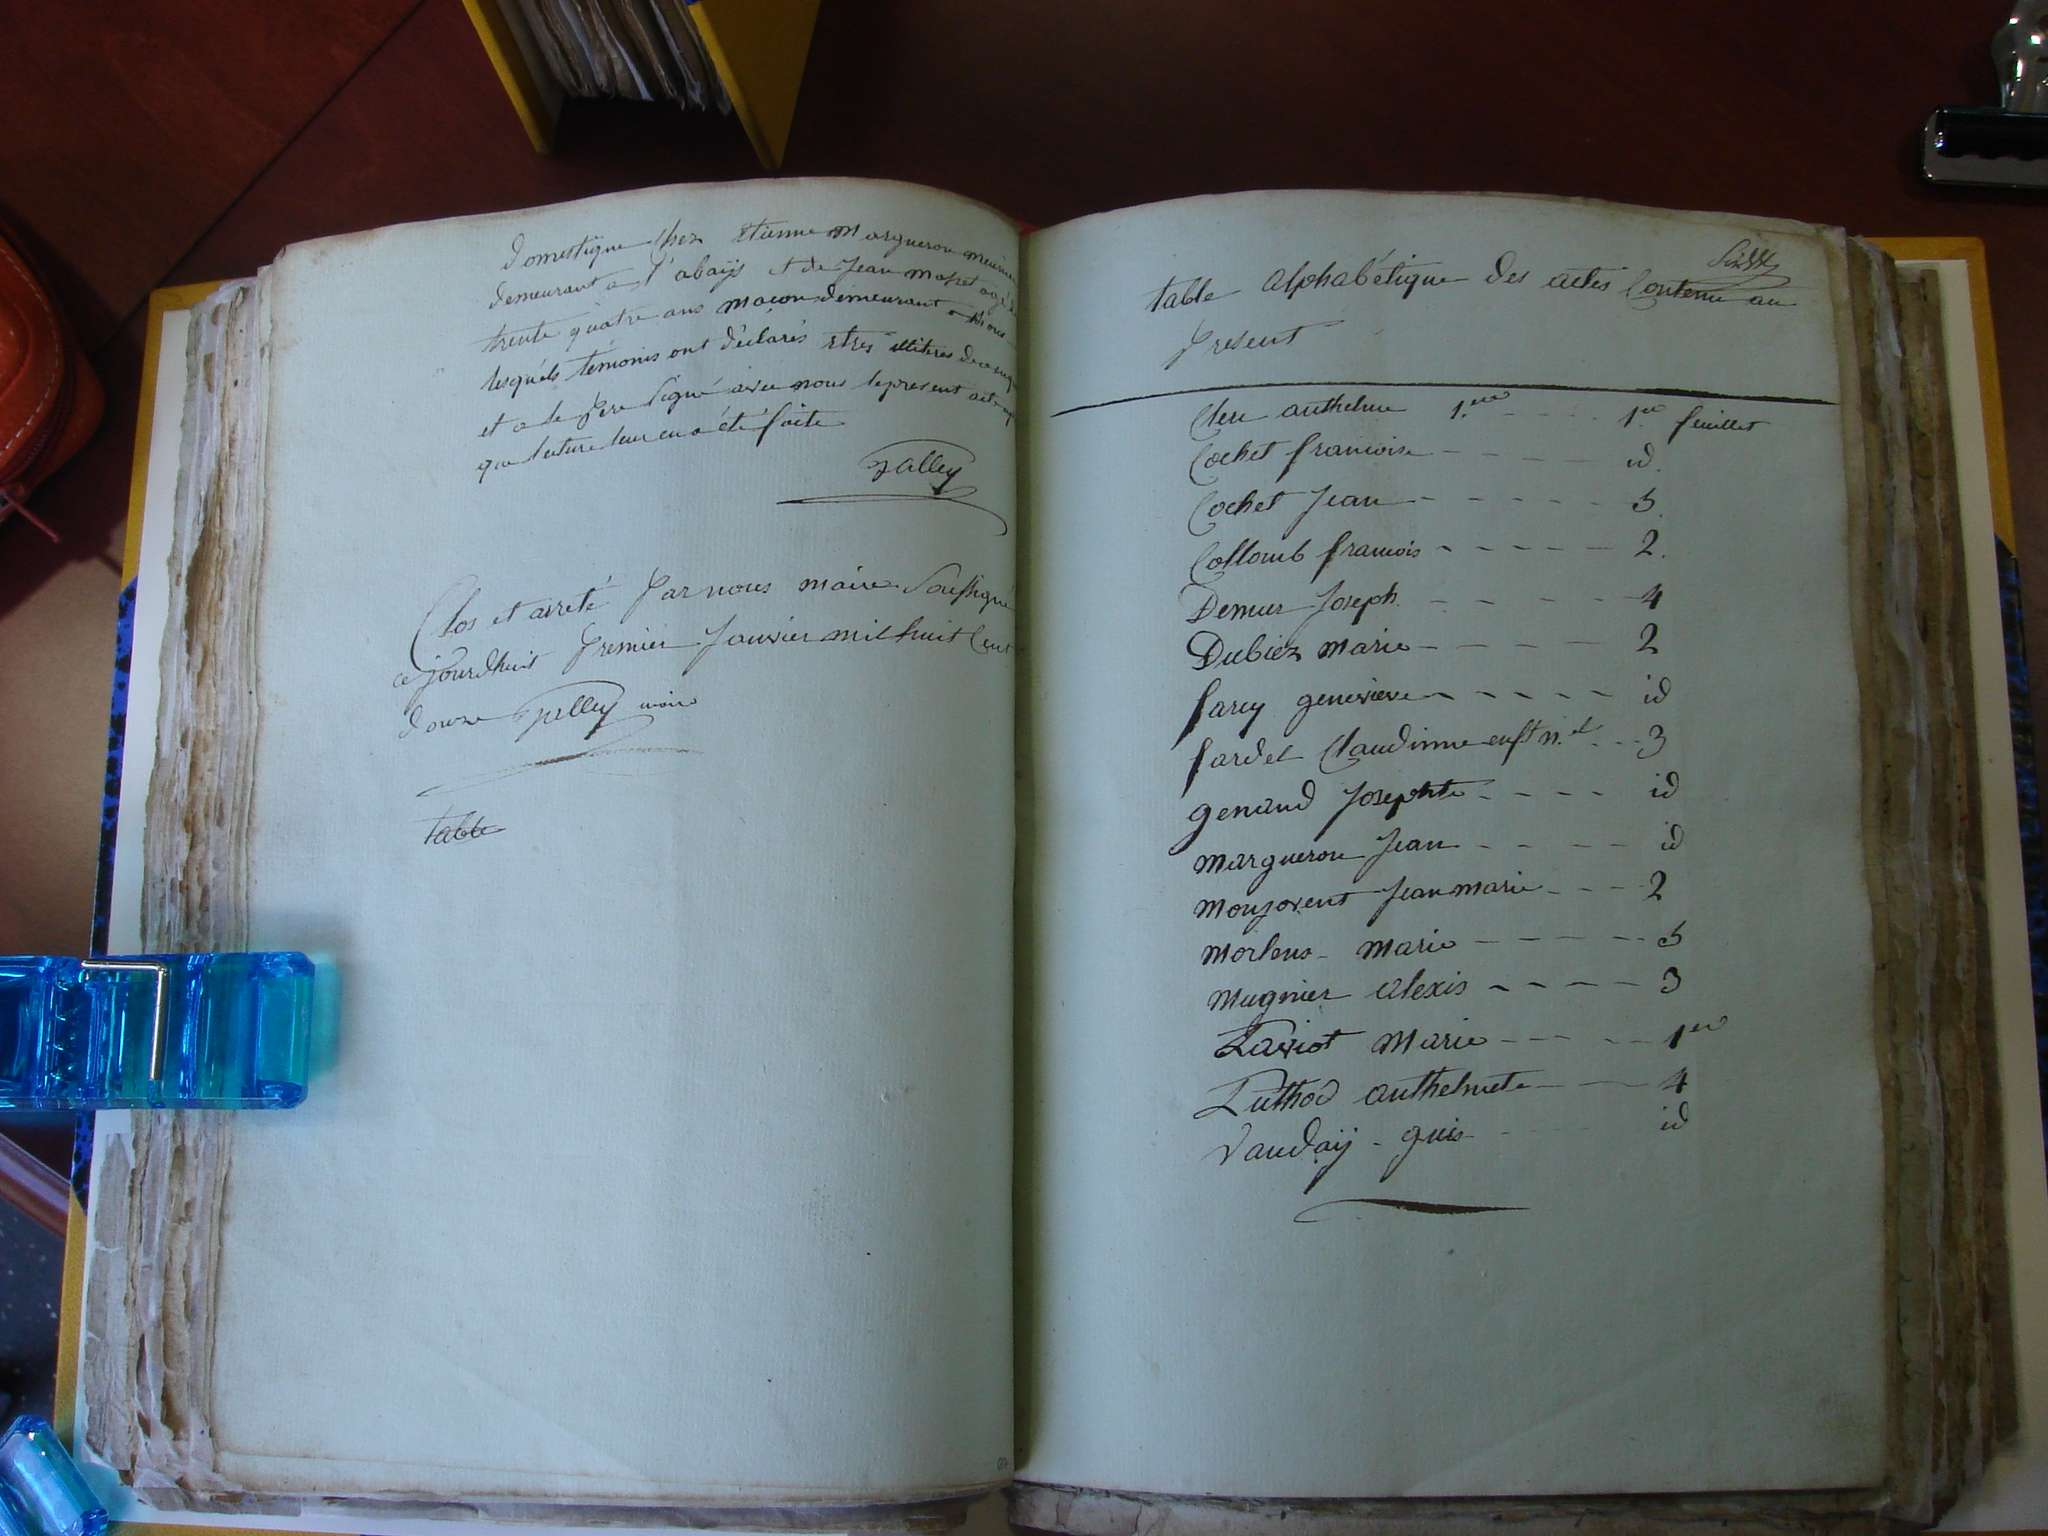 Domestique Chez Etienne Margueron meunier
demeurant a l'abaÿs et de Jean Moret agé de
trente quatre ans maçon demeurant a
lesquels témoins ont déclarés etres illiteres de ce enquis
et a le pere Signé avec nous le present acte apres
que lecture leur en a été faite
Jalley
Clos et arreté Par nous maire Soussigné
ce jourd'huit Premier Janvier mil huit Cent
douze Jalley maire
table
Sixte
table alphabétique Des actes Contenu au
Present
Clerc anthelme 1.ere - - - - 1.er feuillet
Cochet francoise - - - - id.
Cochet Jean - - - - - 5.
Collomb francois - - - - - 2.
Demur Joseph. - - - - - 4
Dubiez marie - - - - - 2
farcy genevieve - - - - - id
fardel Claudinne enft n.el - - - 3
genaud Josephte - - - - id
margueron Jean - - - - - id
monjovent Jean marie - - - 2
morlens - marie - - - - - 5
mugnier alexis - - - - - 3
Paviot Marie - - - - - 1er
Puthod anthelmete - - - 4
Vaudaÿ - guis - - - - id